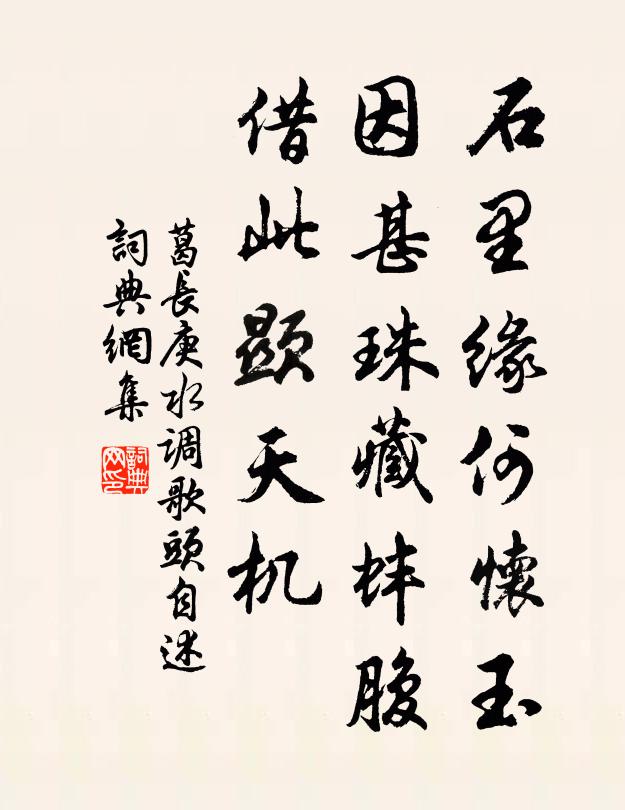 石里缘何懷玉
因甚珠藏蚌腹
借此顯天机
葛長庚水调歌頭自述
詞典網集
詞典網印